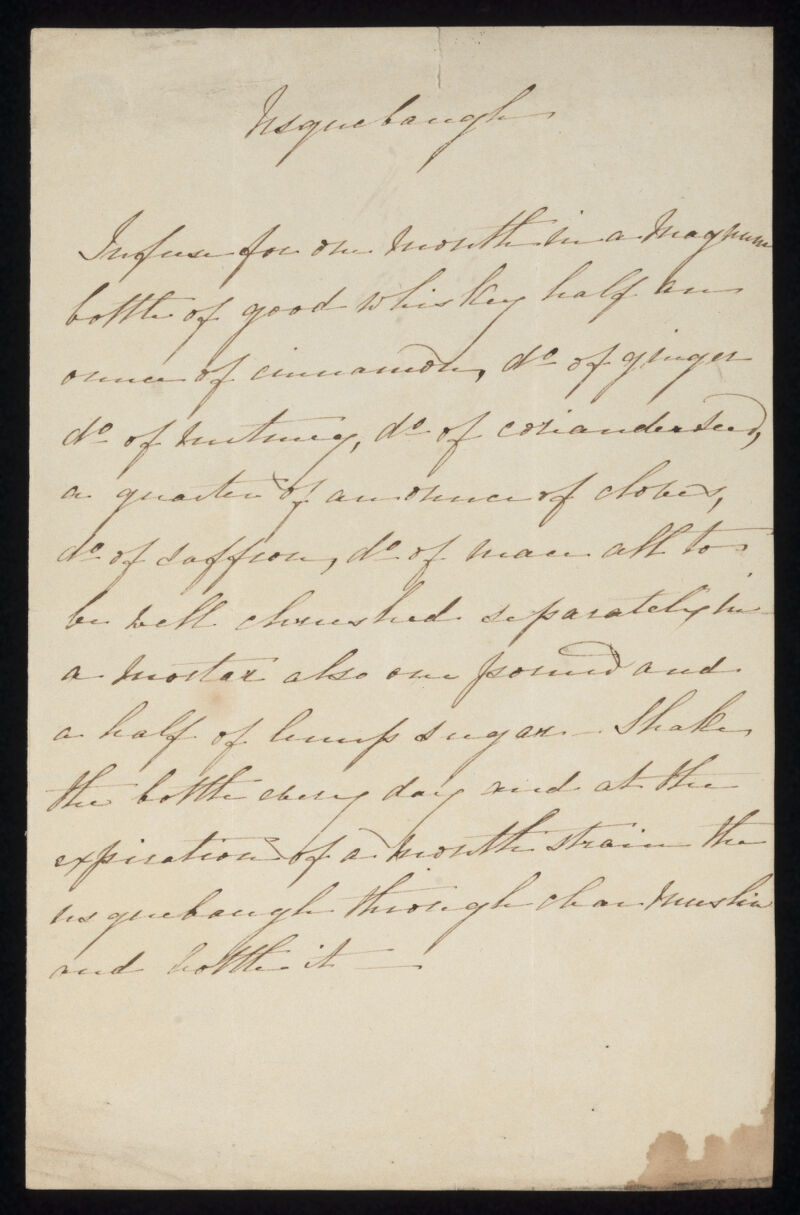 Usquebaugh
Infuse for one month in a Magnum
bottle of good whiskey half an
ounce of cinnamon, do of ginger
do of nutmeg, do of coriander seed,
a quarter of an ounce of cloves,
do of saffron, do of mace all to
be well chrushed separately in
a mortar also one pound and
a half of lump sugar - Shake
the bottle every day and at the
expiration of a month strain the
usquebaugh through clear Muslin
and bottle it —